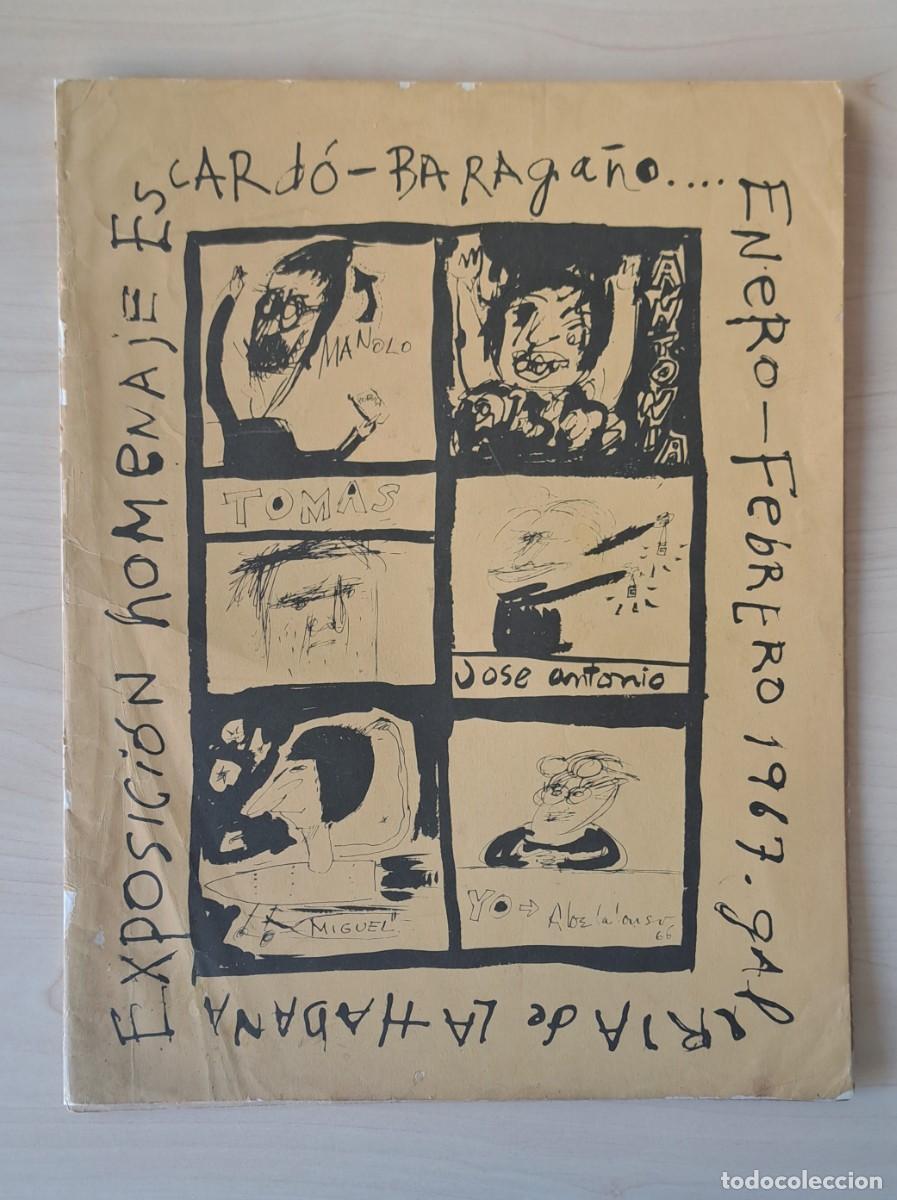 EXPOSICIÓN hOMENAJE ESCARdó-BARAgaño....
ENERO-FebRERO 1967. gALeRIA de LA HABANA
MANOLO
ANTONIA
TOMAS
Jose antonio
MIGUEL
YO →
66
todocoleccion